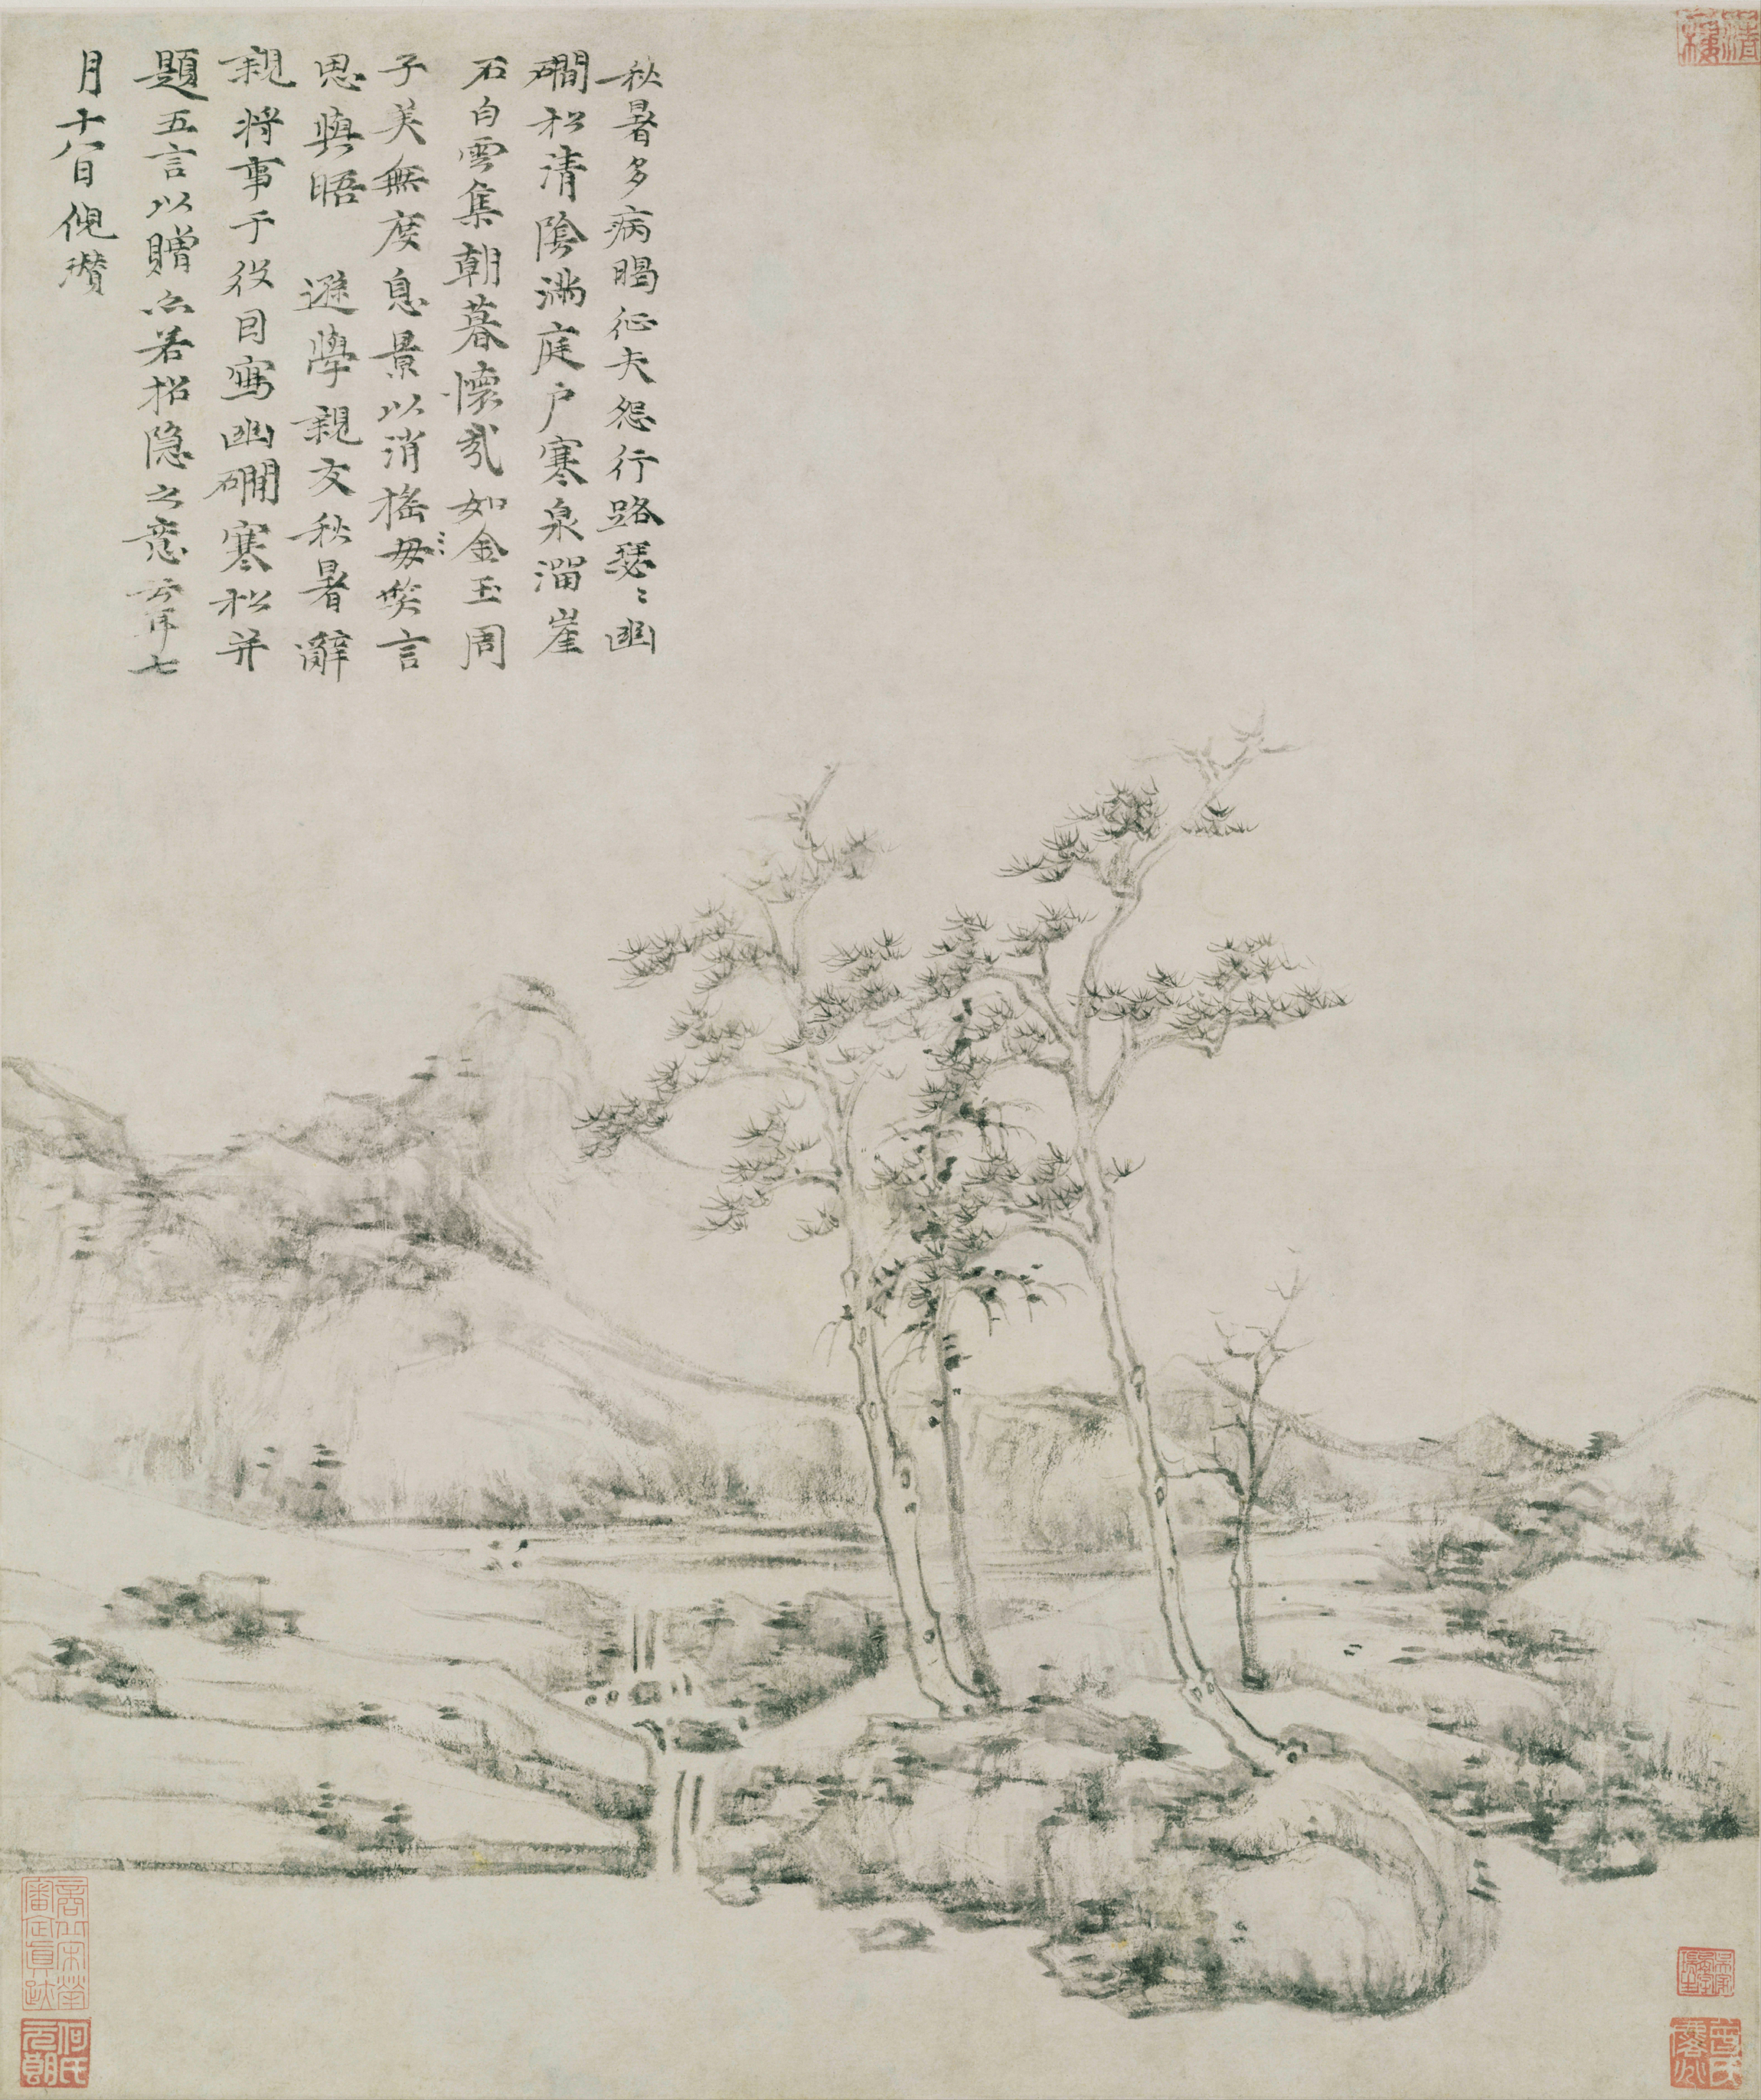 秋暑多病暍征夫怨行路瑟〻幽
磵松清陰滿庭戶寒泉溜崖
石白雲集朝暮懷哉如金玉周
子美無度息景以消搖毋𥬇言
思與晤 遜學親友秋暑辭
親將事于役因寫幽磵寒松并
題五言以贈亦若招隱之意云耳七
月十八日倪瓚
何氏
元朗